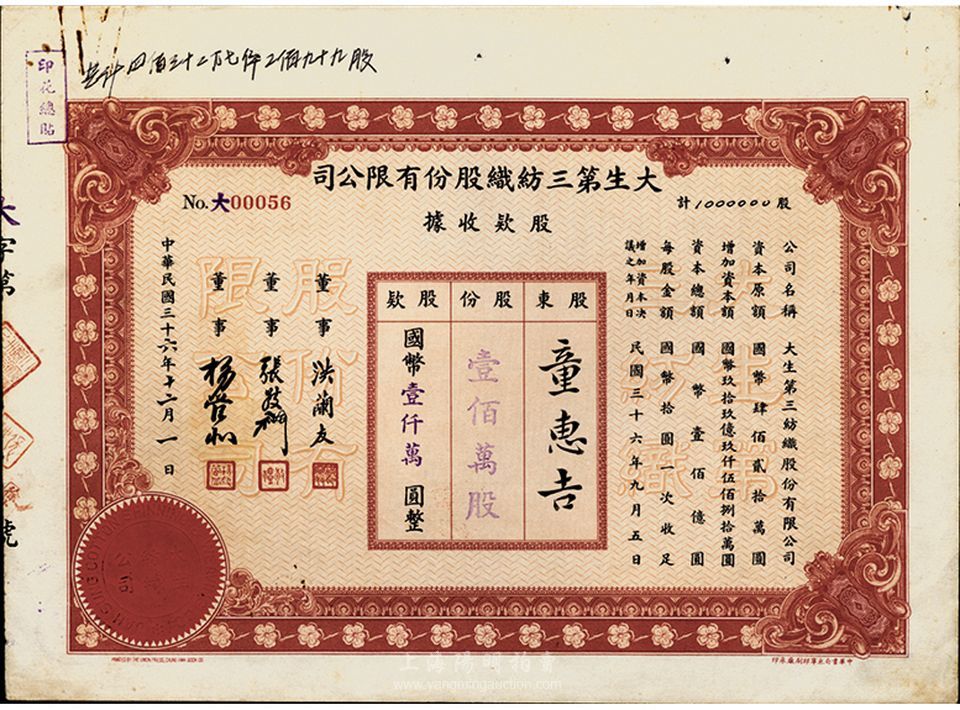 共計四佰三十二万七仟二佰九十九股
印花總貼
大生第三紡織股份有限公司
No. 大00056
計1000000股
股款收據
公司名稱 大生第三紡織股份有限公司
資本原額 國幣肆佰貳拾萬圓
增加資本額 國幣玖拾玖億玖仟伍佰捌拾萬圓
資本總額 國幣壹佰億圓
每股金額 國幣拾圓一次收足
增加資本決議之年月日 民國三十六年九月五日
股東 童惠吉
股份 壹佰萬股
股款 國幣壹仟萬圓整
董事 洪蘭友
董事 張敬禮
董事 楊管北
中華民國三十六年十二月一日
大字第
號
PRINTED BY THE UNION PRESS, CHUNG HWA BOOK CO
中華書局永寧印刷廠承印
上海陽明拍賣
www.yangmingauction.com